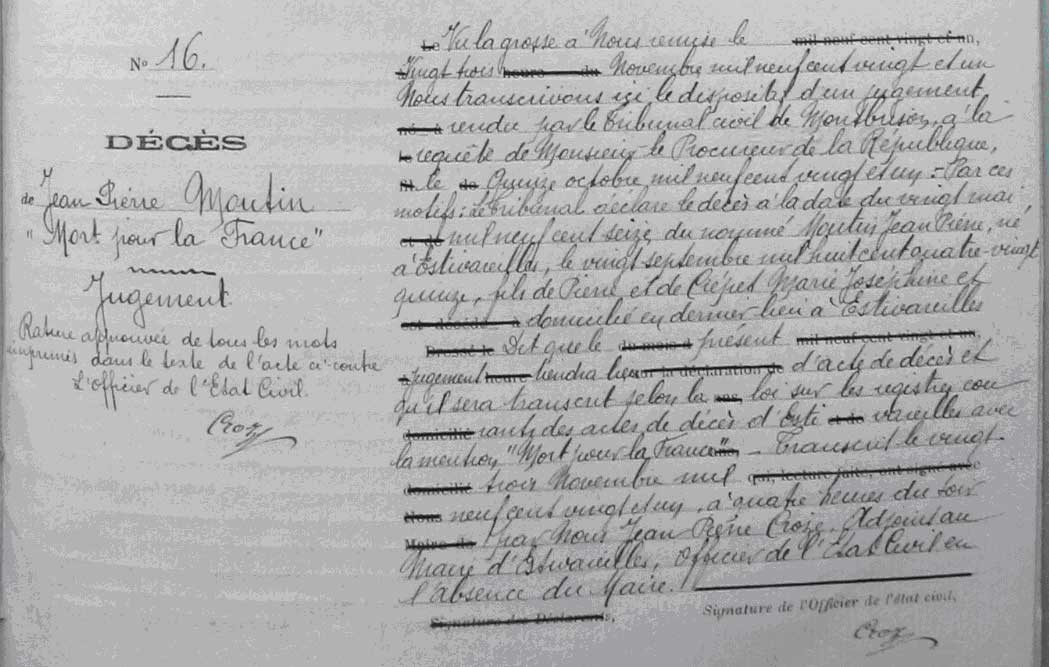 N° 16.
DÉCÈS
de Jean Pierre Moutin
"Mort pour la France"
Jugement.
Rature approuvée de tous les mots
imprimés dans le texte de l'acte ci-contre
L'officier de l'Etat Civil.
Croze
Le Vu la grosse à Nous remise le mil neuf cent vingt et un,
Vingt trois heure du Novembre mil neuf cent vingt et un
Nous transcrivons ici le dispositif d'un jugement
né à rendu par le Tribunal civil de Montbrison, à la
le requête de Monsieur le Procureur de la République,
fil. le de Quinze octobre mil neuf cent vingt et un - Par ces
motifs: Le Tribunal déclare le décès à la date du vingt mai
et de mil neuf cent seize du nommé Moutin Jean Pierre, né
à Estivareilles, le vingt septembre mil huit cent quatre-vingt
quinze, fils de Pierre et de Crépet Marie Joséphine et
est décédé à domicilié en dernier lieu à Estivareilles
Dressé le Dit que le du mois d présent mil neuf cent vingt et un,
à jugement heure tiendra lieu sur la déclaration de d'acte de décès et
qu'il sera transcrit selon la loi sur les registres cou
domicilié rants des actes de décès d'Esti et de vareilles avec
la mention "Mort pour la France" - Transcrit le vingt
domicilié trois Novembre mil qui, lecture faite, ont signé avec
Nous neuf cent vingt et un, à quatre heures du soir
Maire de par Nous Jean Pierre Croze, Adjoint au
Maire d'Estivareilles, Officier de l'Etat Civil en
l'absence du Maire.
Signature des Déclarants,
Signature de l'Officier de l'état civil,
Croze